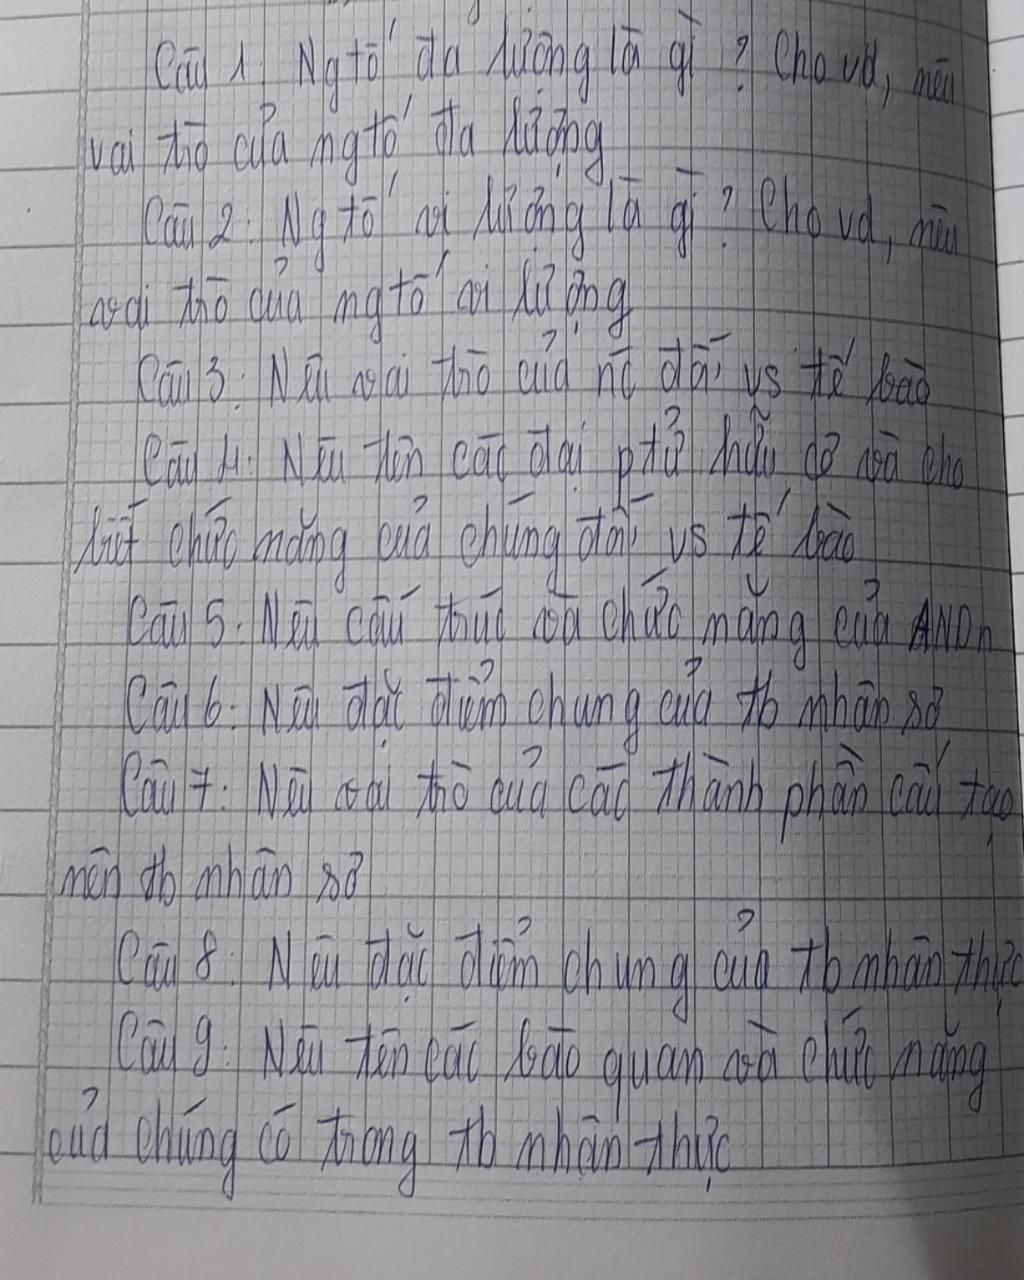 Câu 1: Ng tố đa lượng là gì? Cho vd, nêu
vai trò của ng tố đa lượng
Câu 2: Ng tố vi lượng là gì? Cho vd, nêu
vai trò của ng tố vi lượng
Câu 3: Nêu vai trò của nc đối vs tế bào
Câu 4: Nêu tên các đại ptử hữu cơ và cho
biết chức năng của chúng đối vs tế bào
Câu 5: Nêu cấu trúc và chức năng của ADN
Câu 6: Nêu đặc điểm chung của tb nhân sơ
Câu 7: Nêu vai trò của các thành phần cấu tạo
nên tb nhân sơ
Câu 8: Nêu đặc điểm chung của tb nhân thực
Câu 9: Nêu tên các bào quan và chức năng
của chúng có trong tb nhân thực